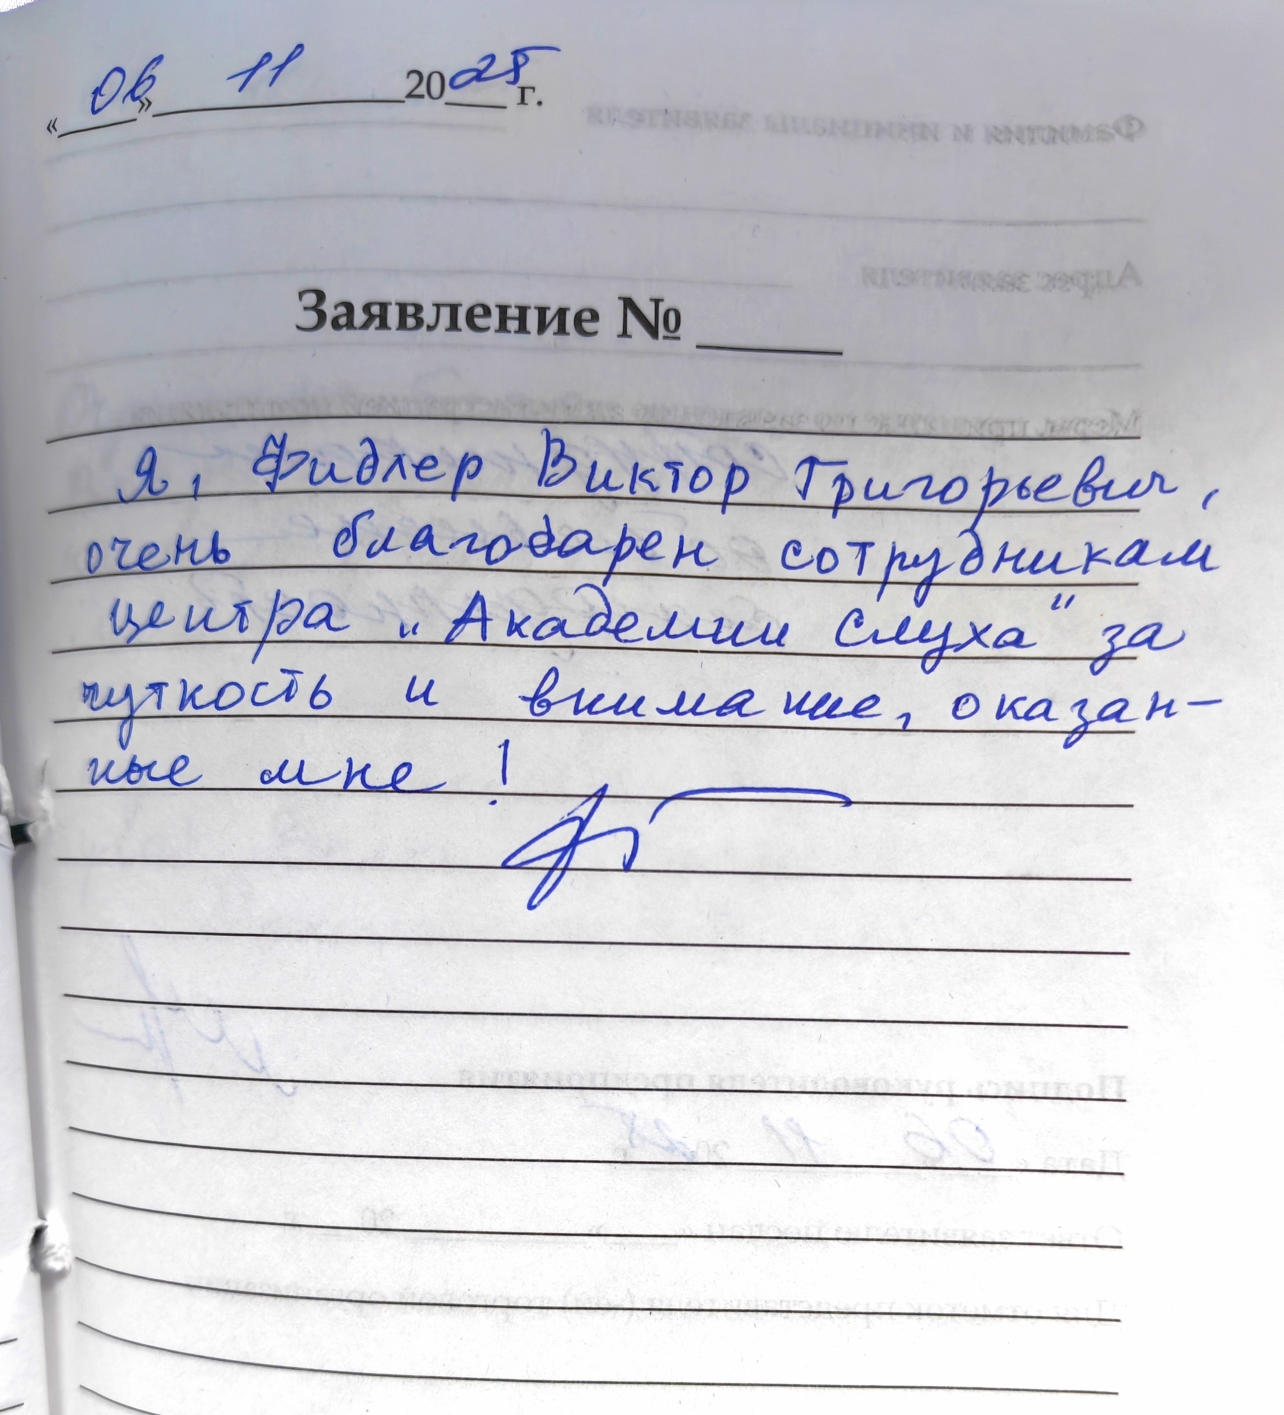 «06» 11 2025 г.
Заявление № ____
Я, Фидлер Виктор Григорьевич,
очень благодарен сотрудникам
центра „Академии слуха" за
чуткость и внимание, оказан-
ные мне!